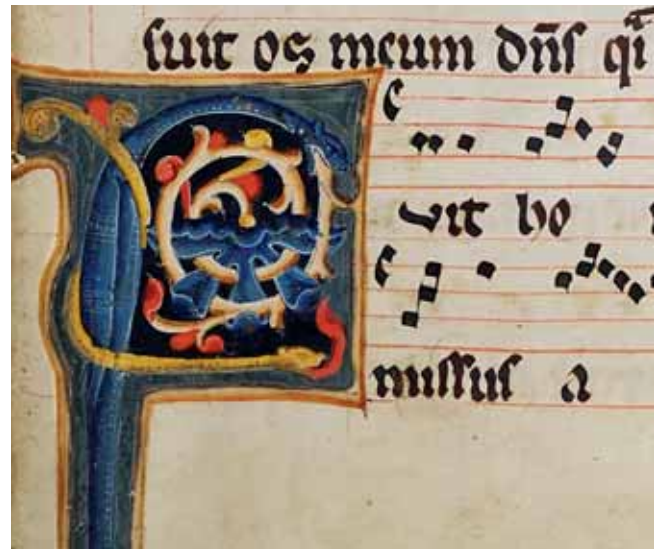 suit os meum dñs qi
F uit ho
missus a